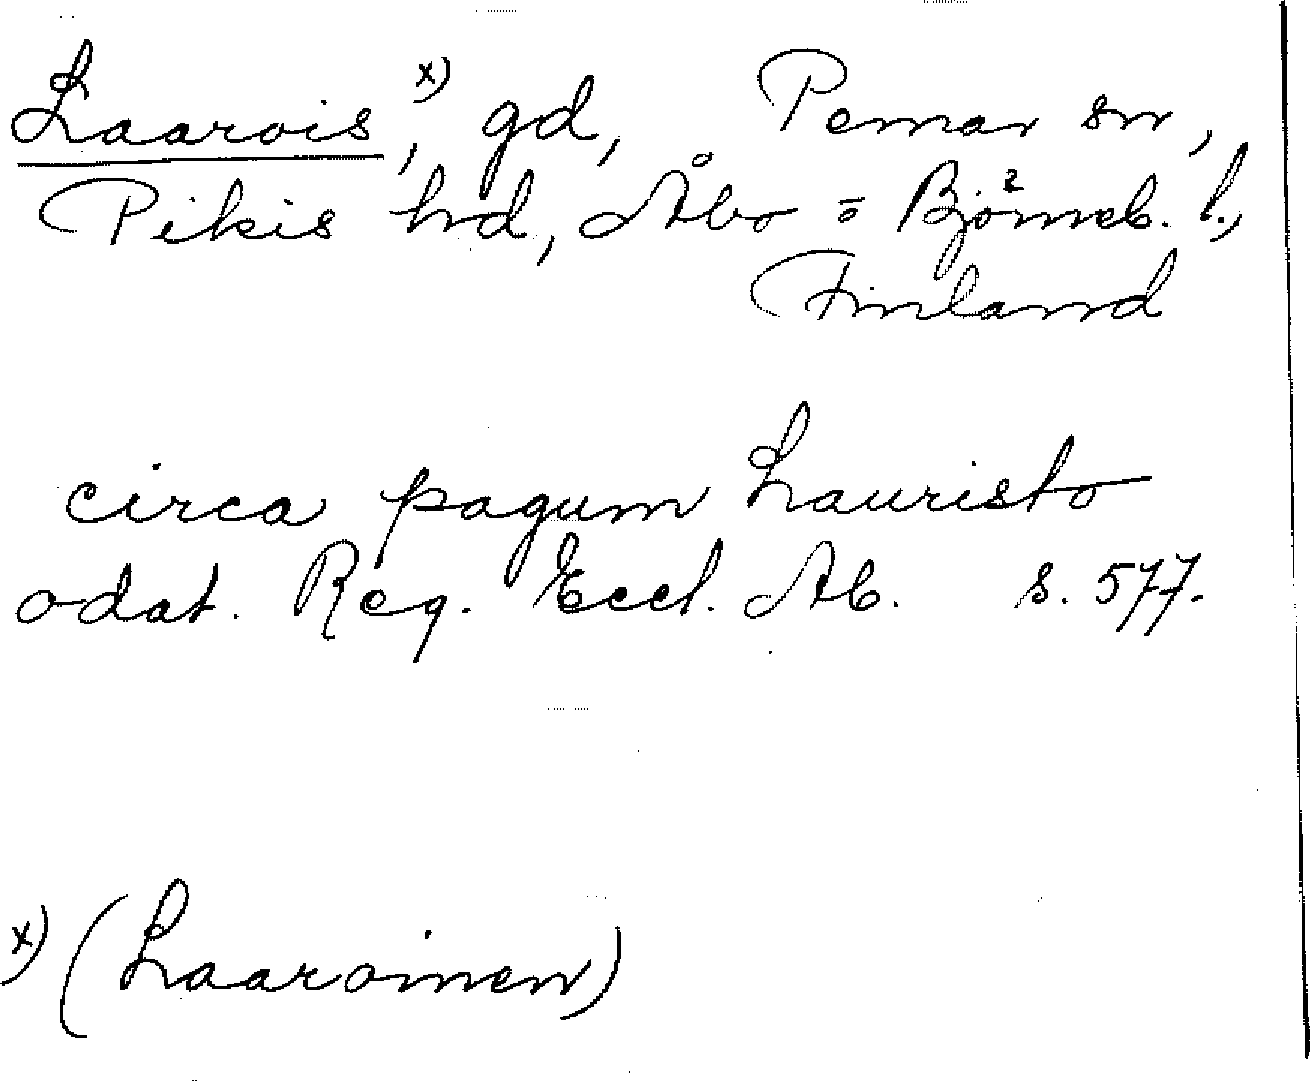 Laarois,ˣ⁾ gd, Pemar sn,
Pikis hd, Åbo = Björneb. l.,
Finland
circa pagum Lauristo
odat. Reg. Eccl. Ab. s. 577.
x) (Laaroinen)